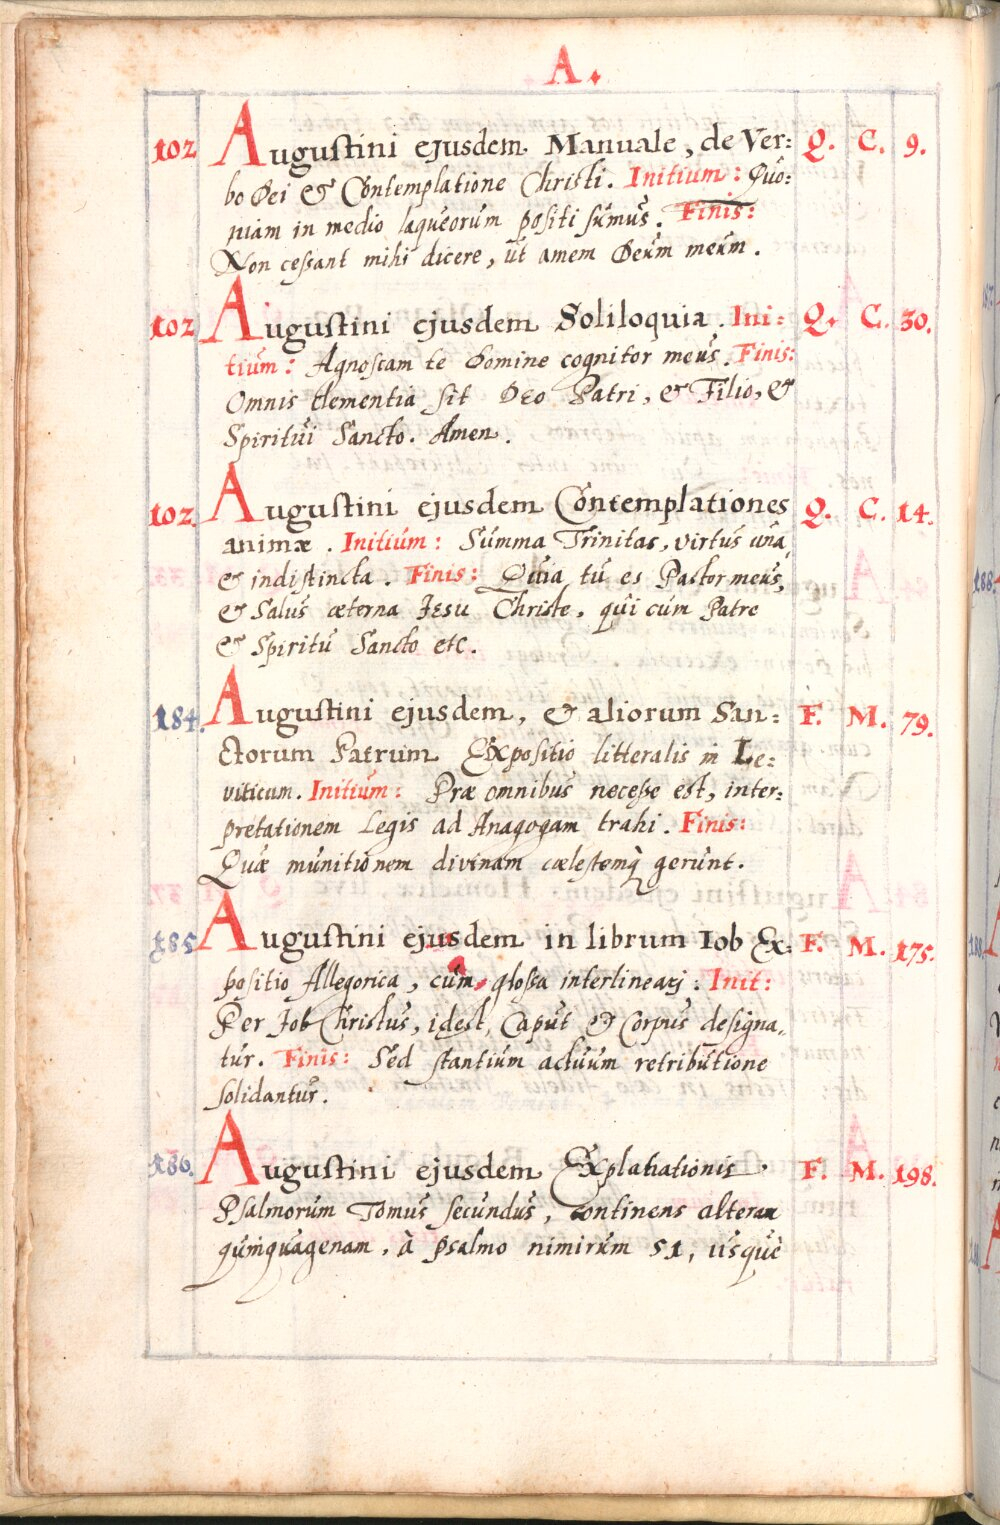 A.
102 Augustini ejusdem Manuale, de Ver: Q. C. 9.
bo Dei & Contemplatione Christi. Initium: Quo:
niam in medio laqueorum positi sumus. Finis:
Non cessant mihi dicere, ut amem Deum meum.
102 Augustini ejusdem Soliloquia. Ini: Q. C. 30.
tium: Agnoscam te Domine cognitor meus. Finis:
Omnis clementia sit DEO Patri, & Filio, &
Spiritui Sancto. Amen.
102. Augustini ejusdem Contemplationes Q. C. 14.
animæ. Initium: Summa Trinitas, virtus una,
& indistincta. Finis: Quia tu es Pastor meus,
& Salus æterna JESU Christe, qui cum Patre
& Spiritu Sancto etc.
184. Augustini ejusdem, & aliorum San: F. M. 79.
ctorum Patrum Expositio litteralis in Le:
viticum. Initium: Præ omnibus necesse est, inter:
pretationem Legis ad Anagogam trahi. Finis:
Quæ munitionem divinam cælestemq́ gerunt.
185 Augustini ejusdem in librum Iob Ex: F. M. 175.
positio Allegorica, cum glossa interlineari: Init:
Per Job Christus, idest, Caput & Corpus designa,
tur. Finis: Sed stantium actuum retributione
solidantur.
186. Augustini ejusdem Explanationis F. M. 198.
Psalmorum Tomus secundus, continens alteram
quinquagenam, à psalmo nimirum 51, usquè
188.